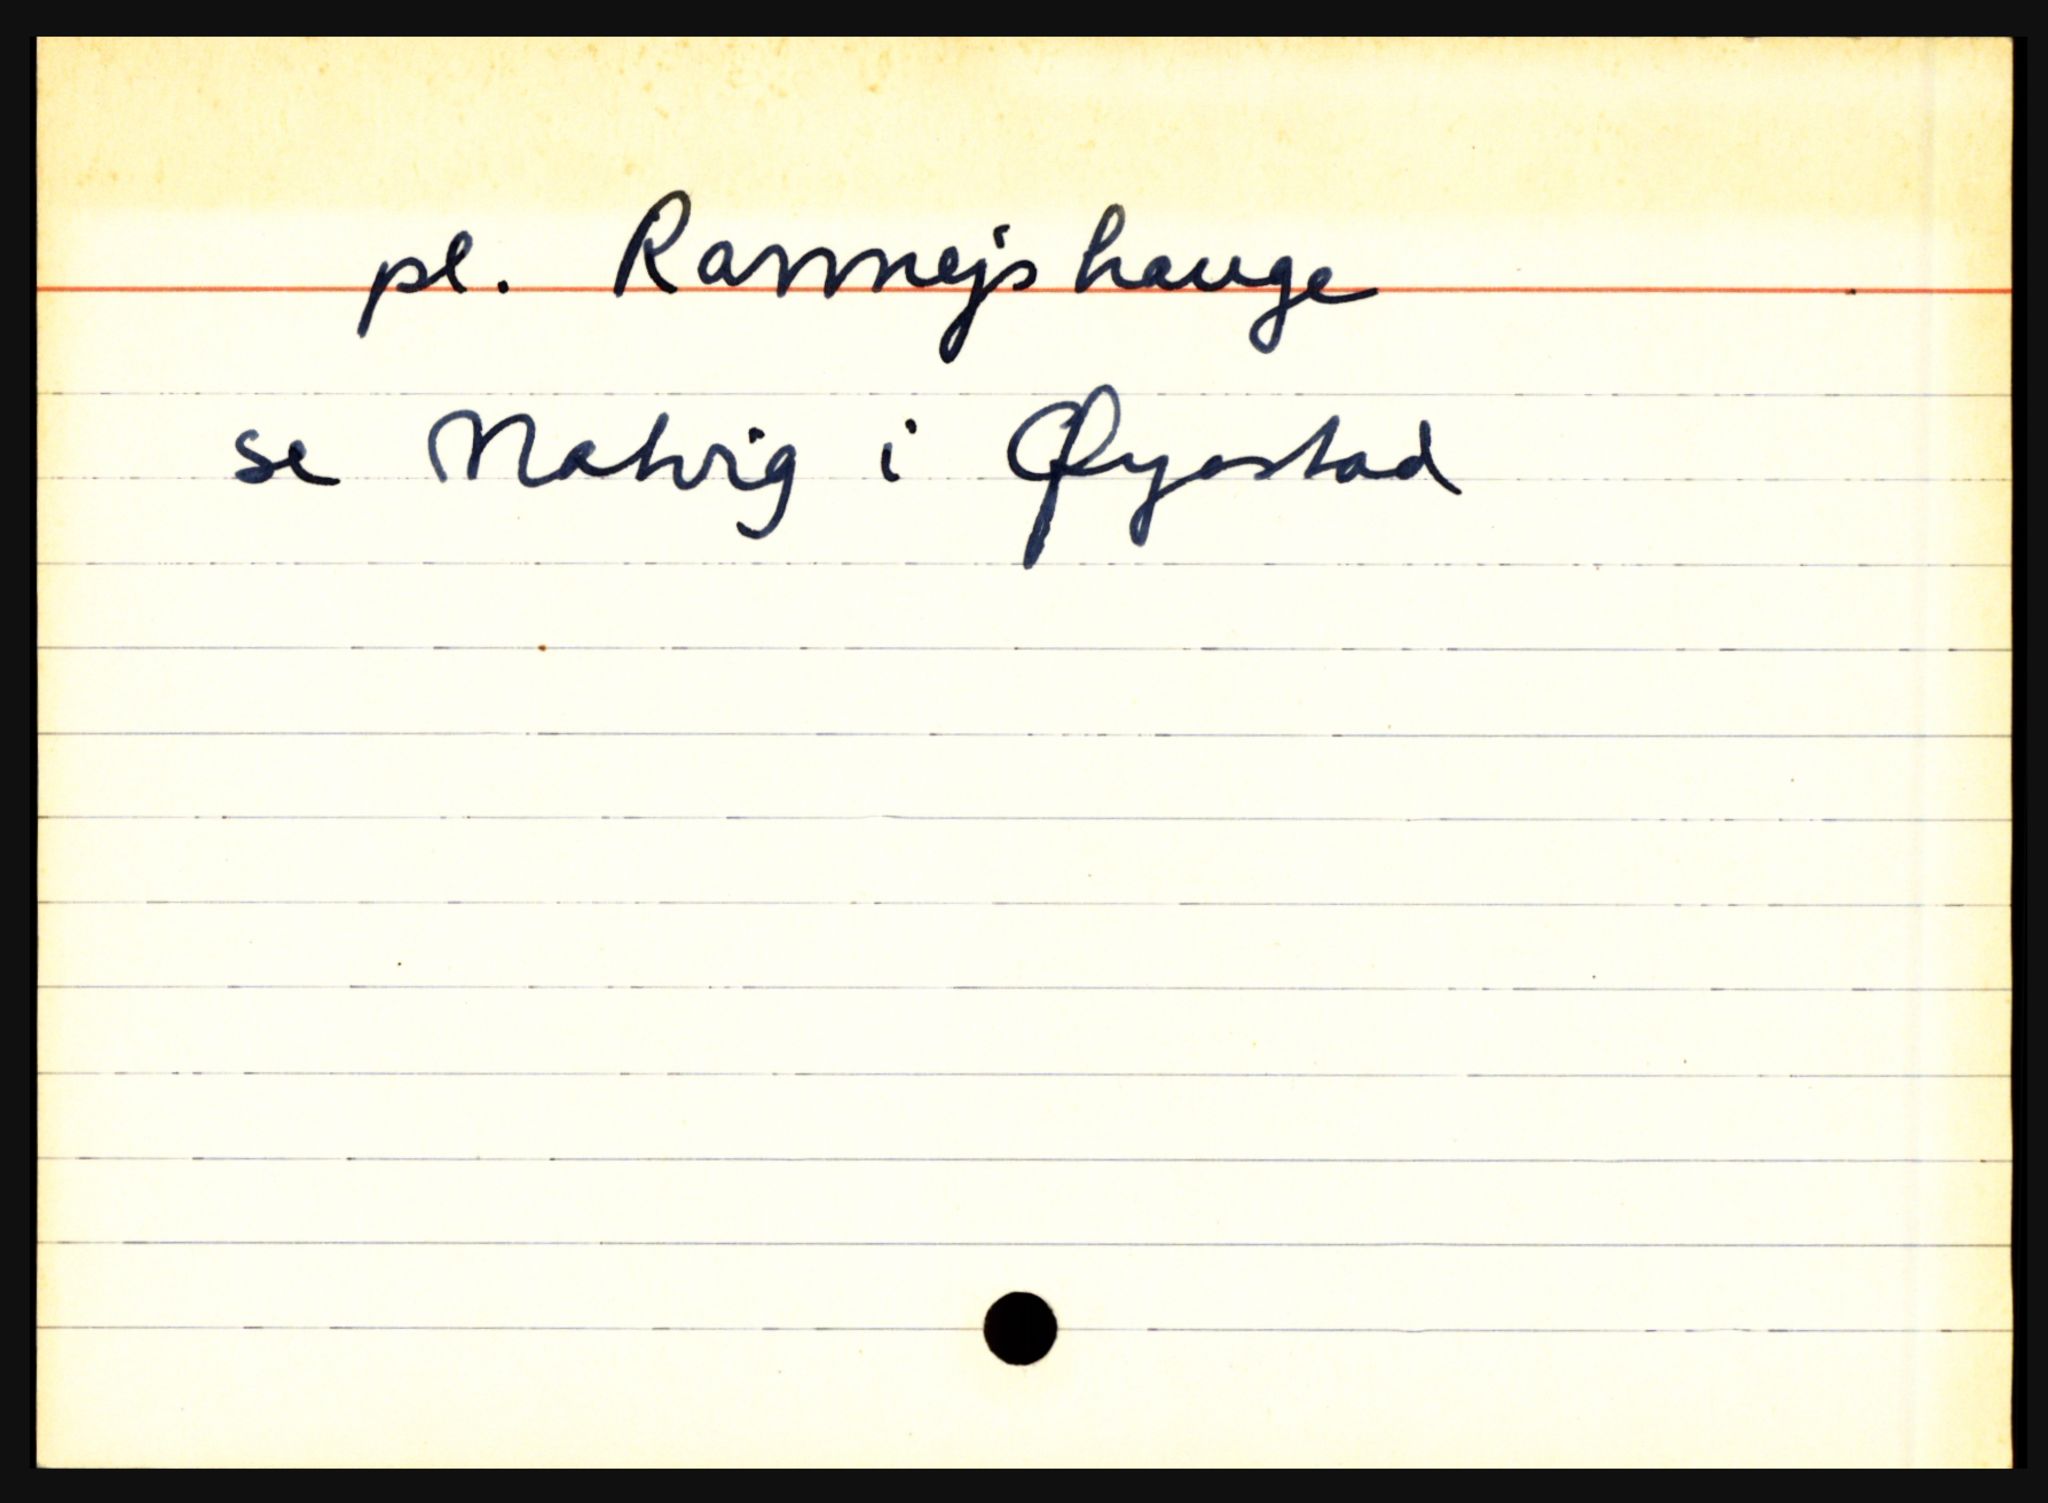 pl. Rannejshauge
se Natvig i Øyestad